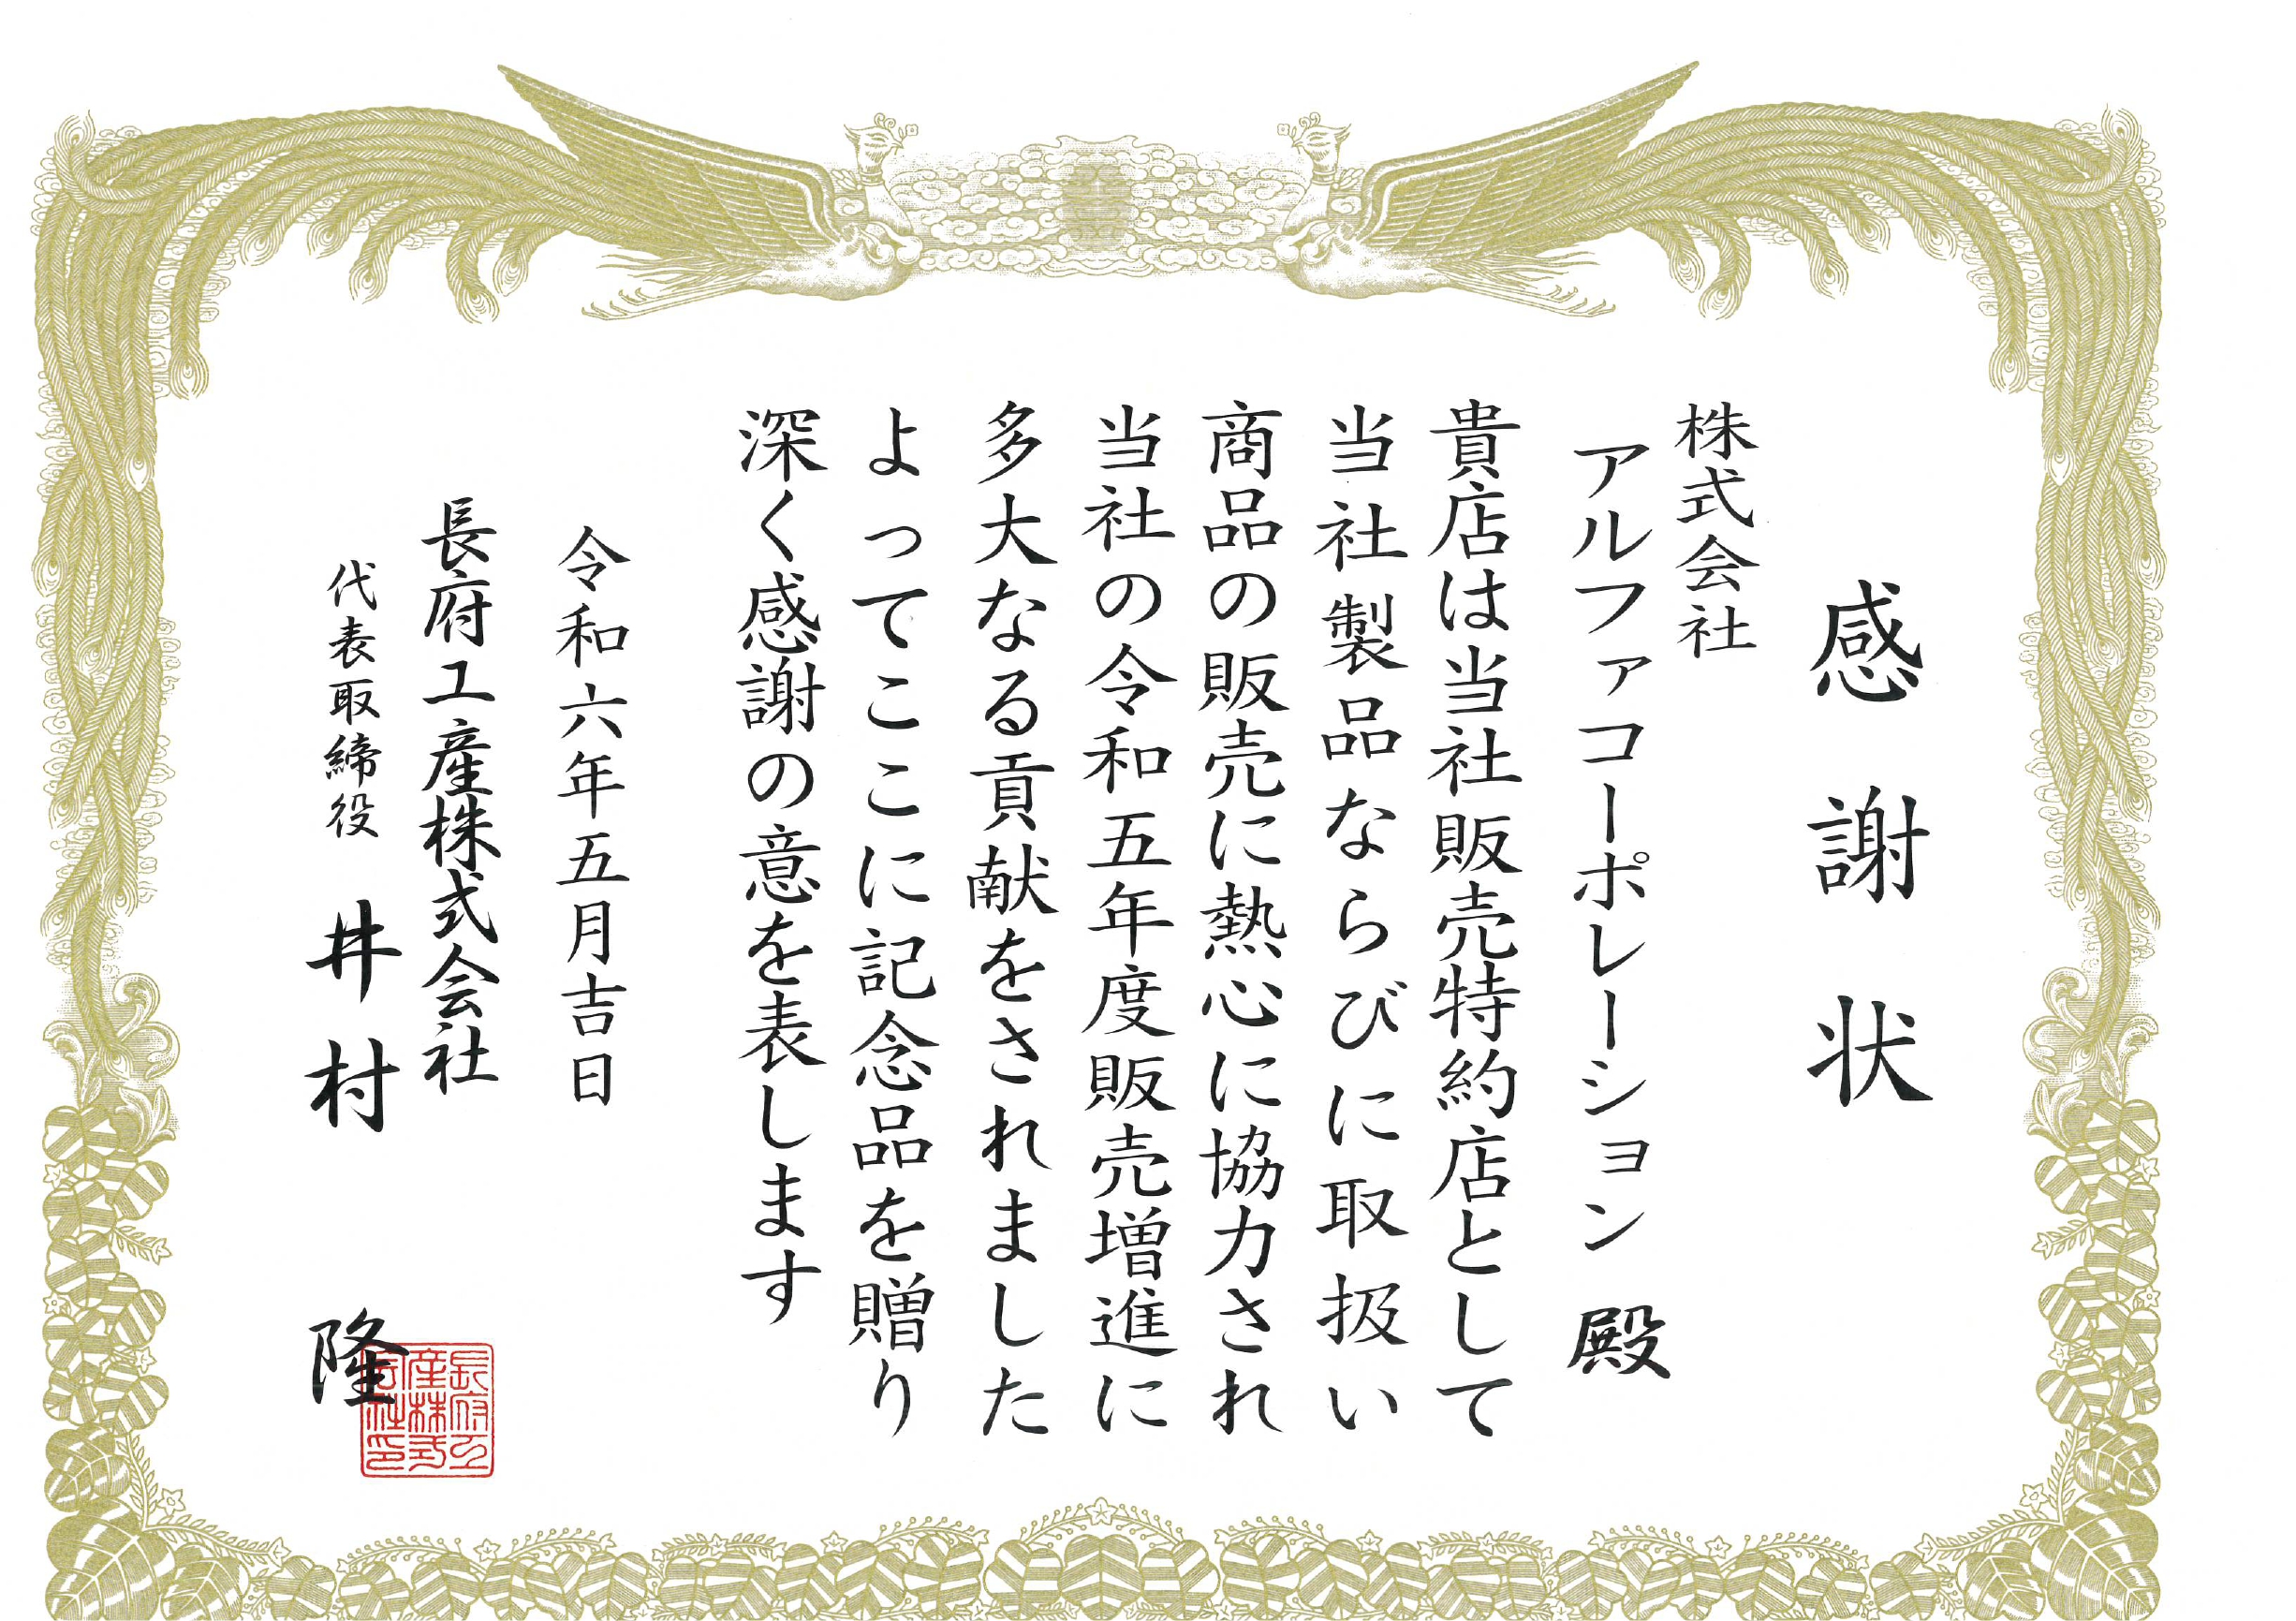 感謝状
株式会社
アルファコーポレーション 殿
貴店は当社販売特約店として
当社製品ならびに取扱い
商品の販売に熱心に協力され
当社の令和五年度販売増進に
多大なる貢献をされました
よってここに記念品を贈り
深く感謝の意を表します
令和六年五月吉日
長府工産株式会社
代表取締役 井村 隆
長府工産株式会社印